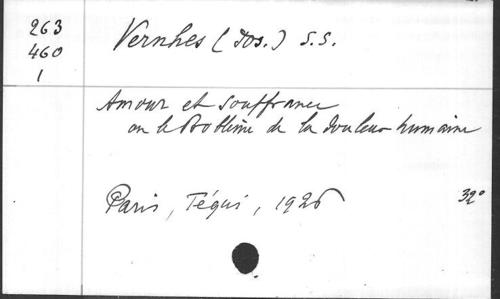 263
460
1
Vernhes (Jos.) S.S.
Amour et souffrance
ou le Problème de la douleur humaine
Paris, Téqui, 1926
32°